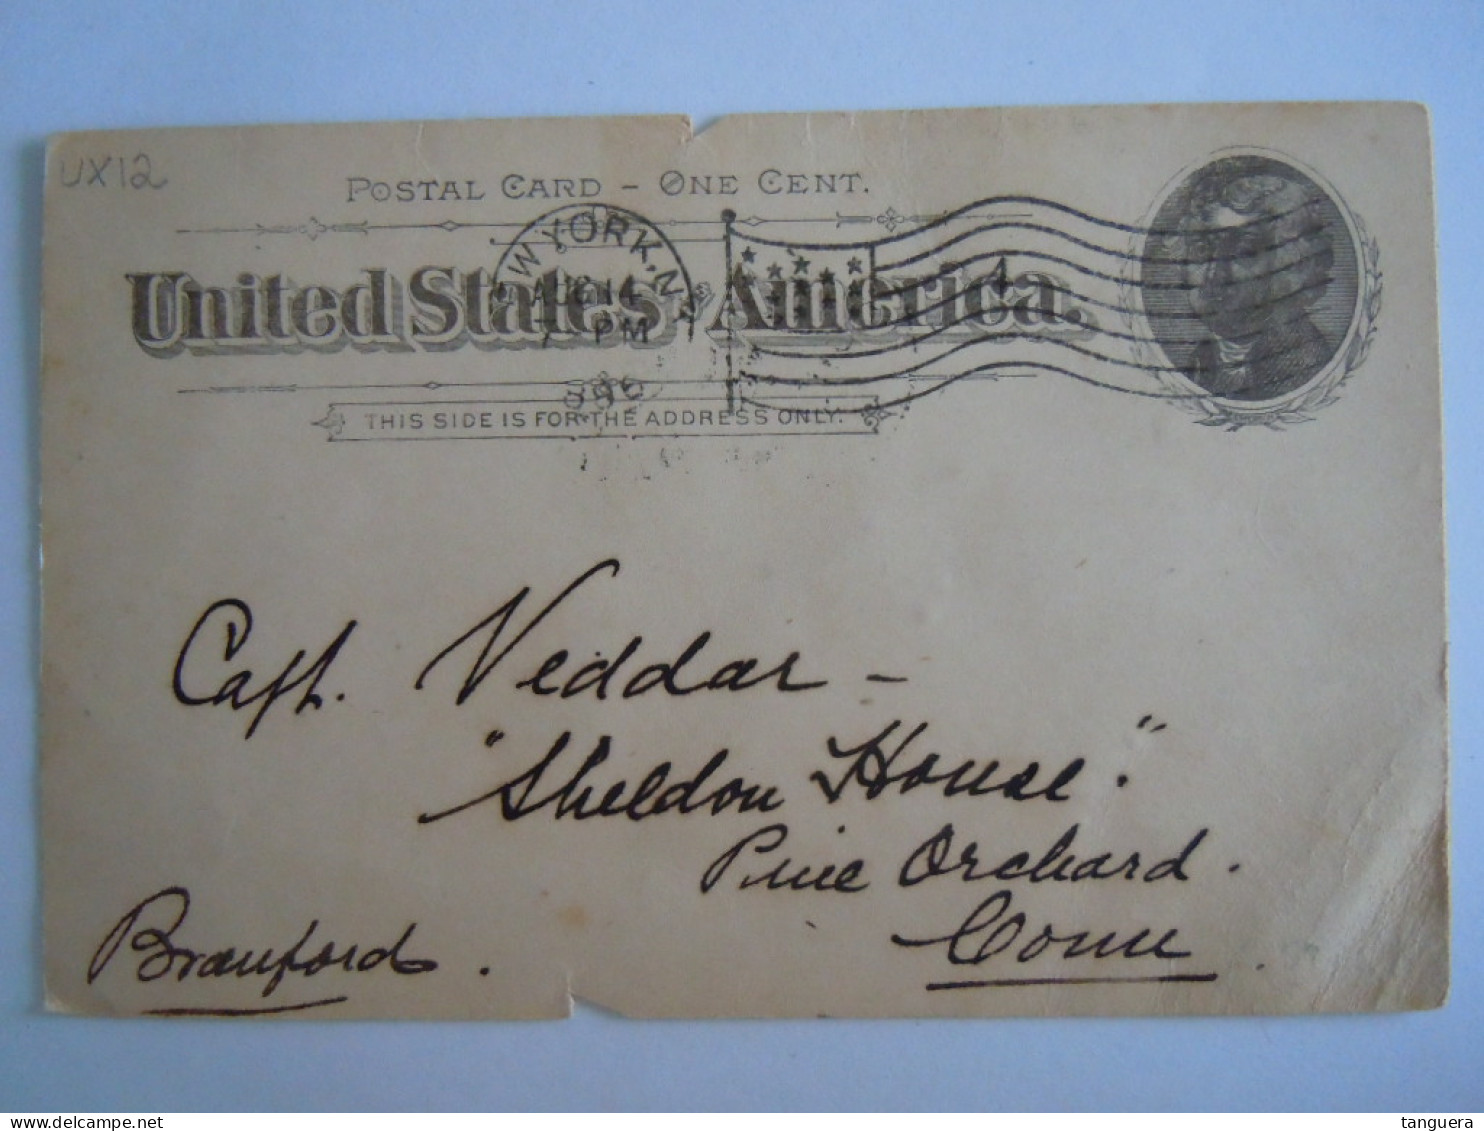 UX12
POSTAL CARD – ONE CENT.
W YORK, N.
AUG 14
7 PM
United States America.
1
THIS SIDE IS FOR THE ADDRESS ONLY.
Capt. Veddar –
"Sheldon House".
Pine Orchard.
Conn
Branford.
tanguera